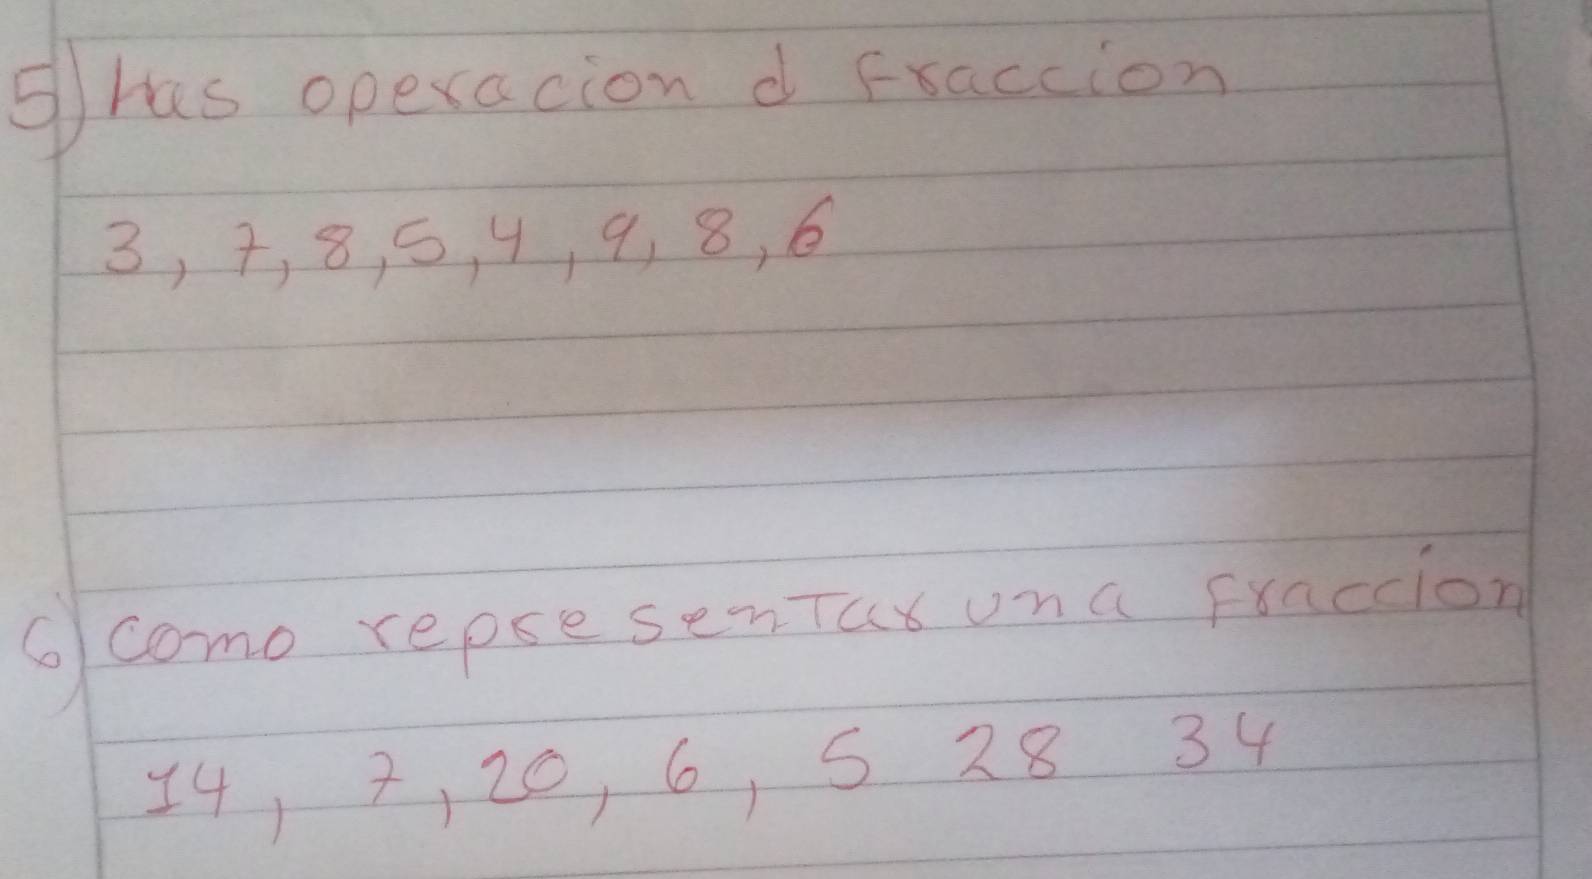 5) Has operacion d fraccion
3, 7, 8, 5, 4, 9, 8, 6
6) como represenTar una fraccion
14, 7, 20, 6, 5 28 34